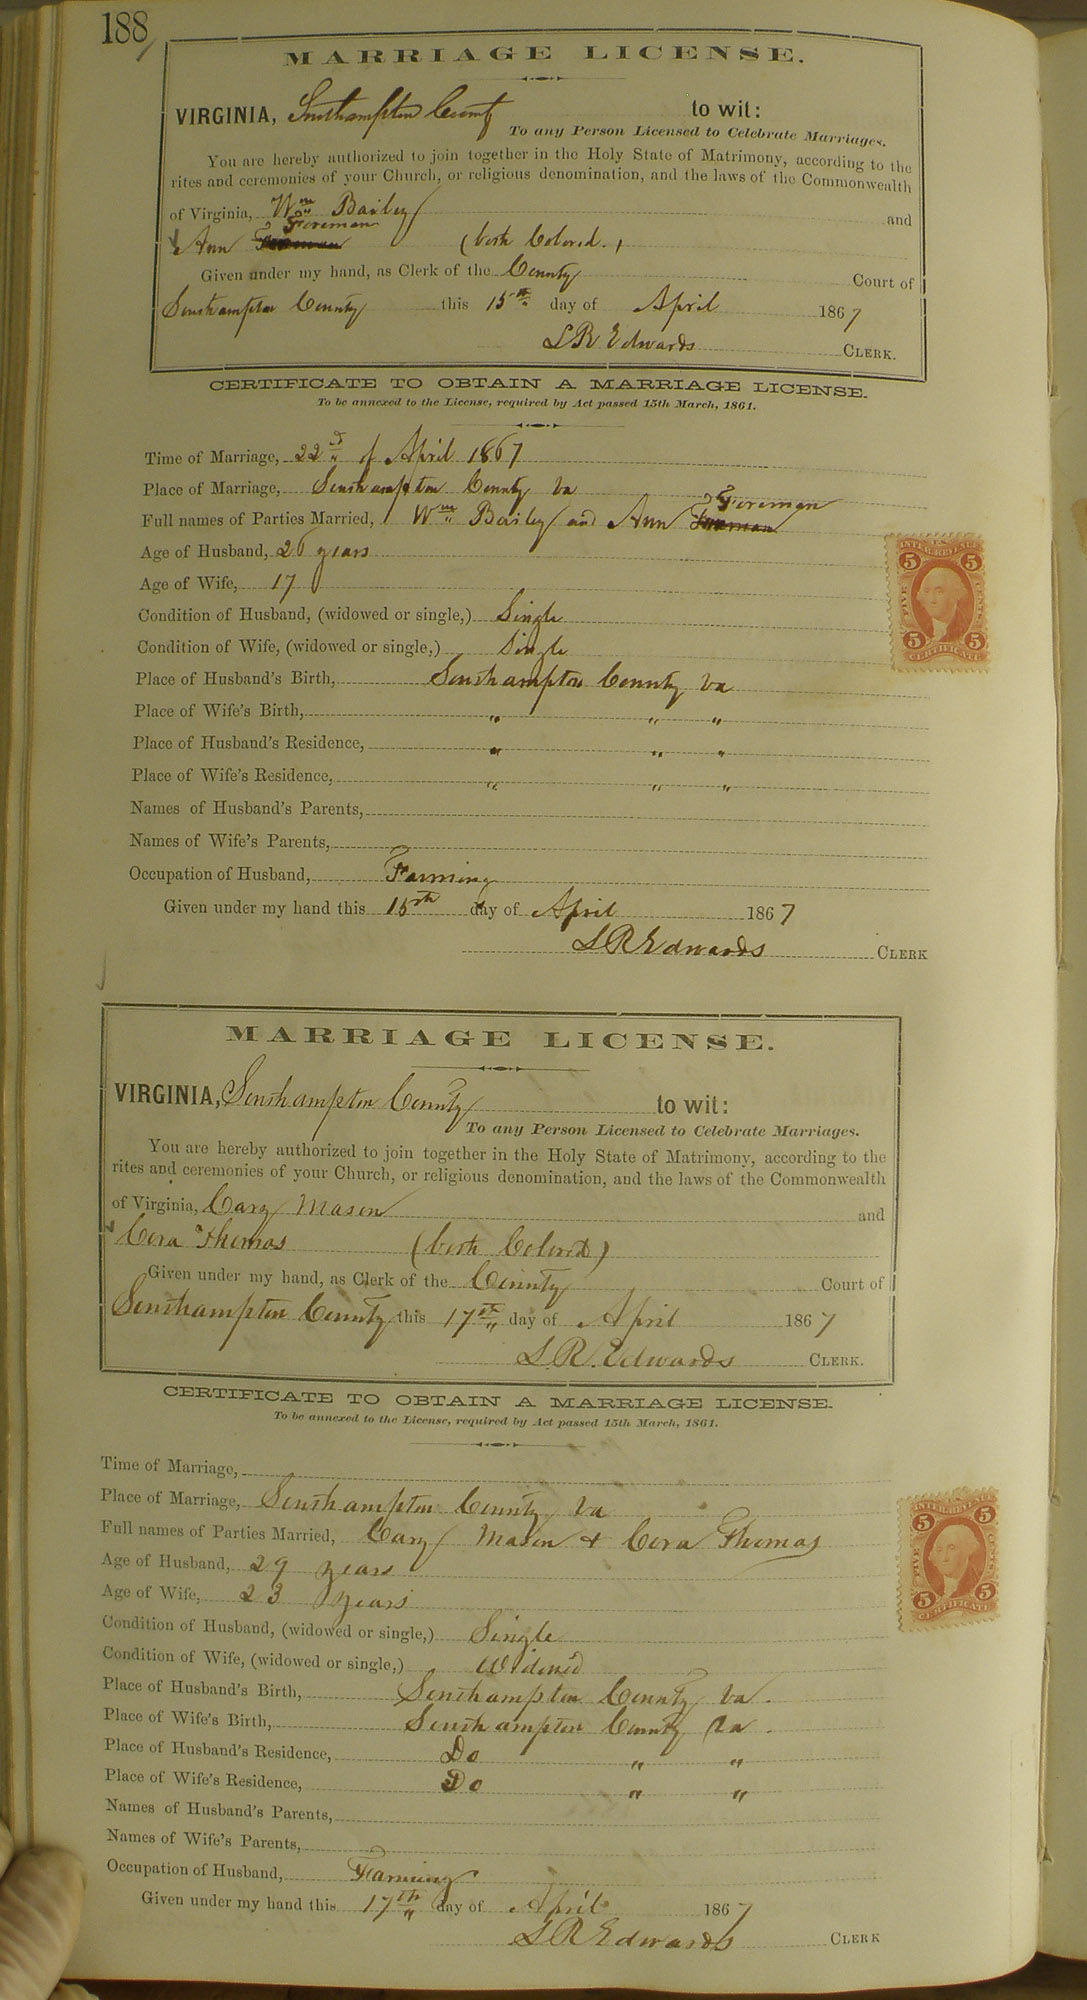 188
MARRIAGE LICENSE.
VIRGINIA, Southampton County to wit:
To any Person Licensed to Celebrate Marriages.
You are hereby authorized to join together in the Holy State of Matrimony, according to the
rites and ceremonies of your Church, or religious denomination, and the laws of the Commonwealth
of Virginia, Wm Bailey and
Foreman
Ann (both Colored.)
Given under my hand, as Clerk of the County Court of
Southampton County this 15th day of April 1867
L R Edwards CLERK.
CERTIFICATE TO OBTAIN A MARRIAGE LICENSE.
To be annexed to the License, required by Act passed 15th March, 1861.
Time of Marriage, 22d of April 1867
Place of Marriage, Southampton County Va
Foreman
Full names of Parties Married, Wm Bailey and Ann
Age of Husband, 26 years
Age of Wife, 17
Condition of Husband, (widowed or single,) Single
Condition of Wife, (widowed or single,) Single
Place of Husband's Birth, Southampton County Va
Place of Wife's Birth, " " "
Place of Husband's Residence, " " "
Place of Wife's Residence, " " "
Names of Husband's Parents,
Names of Wife's Parents,
Occupation of Husband, Farming
Given under my hand this 15th day of April 1867
L R Edwards CLERK
INTER. REVENUE
5 5
FIVE CENTS
5 5
CERTIFICATE
MARRIAGE LICENSE.
VIRGINIA, Southampton County to wit:
To any Person Licensed to Celebrate Marriages.
You are hereby authorized to join together in the Holy State of Matrimony, according to the
rites and ceremonies of your Church, or religious denomination, and the laws of the Commonwealth
of Virginia, Cary Mason and
Cora Thomas (both Colored)
Given under my hand, as Clerk of the County Court of
Southampton County this 17th day of April 1867
L. R. Edwards CLERK.
CERTIFICATE TO OBTAIN A MARRIAGE LICENSE.
To be annexed to the License, required by Act passed 15th March, 1861.
Time of Marriage,
Place of Marriage, Southampton County Va
Full names of Parties Married, Cary Mason + Cora Thomas
Age of Husband, 29 years
Age of Wife, 23 years
Condition of Husband, (widowed or single,) Single
Condition of Wife, (widowed or single,) Widowed
Place of Husband's Birth, Southampton County Va.
Place of Wife's Birth, Southampton County Va.
Place of Husband's Residence, Do " "
Place of Wife's Residence, Do " "
Names of Husband's Parents,
Names of Wife's Parents,
Occupation of Husband, Farming
Given under my hand this 17th day of April 1867
L R Edwards CLERK
INTER. REVENUE
5 5
FIVE CENTS
5 5
CERTIFICATE